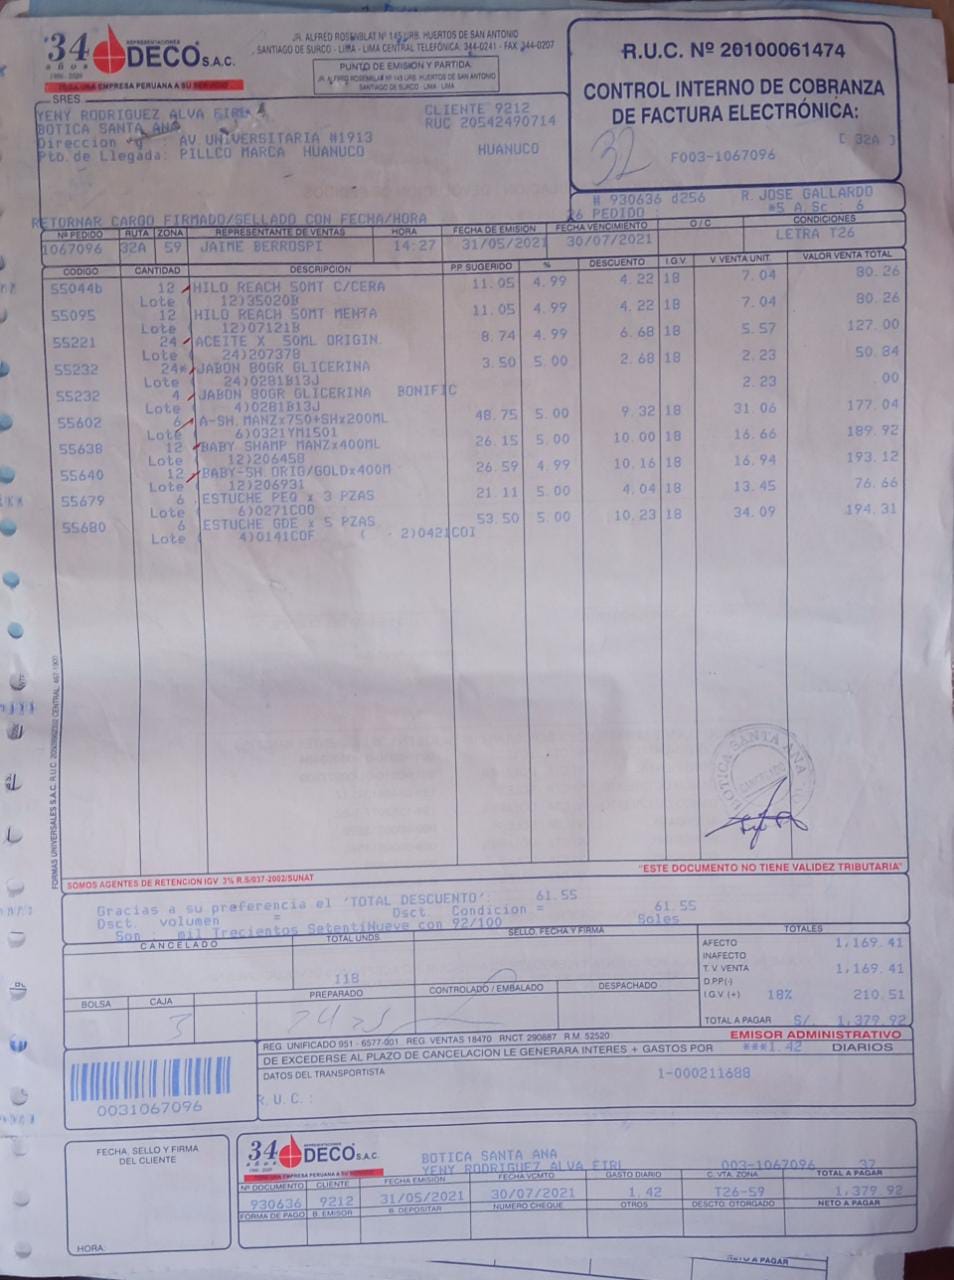 34 años 1986 - 2020
REPRESENTACIONES
DECO S.A.C.
TODA UNA EMPRESA PERUANA A SU SERVICIO
JR. ALFRED ROSENBLAT Nº 145 URB. HUERTOS DE SAN ANTONIO
SANTIAGO DE SURCO - LIMA - LIMA CENTRAL TELEFÓNICA: 344-0241 - FAX: 344-0207
PUNTO DE EMISIÓN Y PARTIDA
JR. ALFRED ROSEMBLAR Nº 145 URB. HUERTOS DE SAN ANTONIO
SANTIAGO DE SURCO - LIMA - LIMA
R.U.C. Nº 20100061474
CONTROL INTERNO DE COBRANZA
DE FACTURA ELECTRÓNICA:
32 [ 32A ]
F003-1067096
SRES
YENY RODRIGUEZ ALVA EIRL CLIENTE 9212
BOTICA SANTA ANA RUC 20542490714
Direccion : AV.UNIVERSITARIA #1913
Pto.de Llegada: PILLCO MARCA HUANUCO HUANUCO
# 930636 d256 R. JOSE GALLARDO
26 PEDIDO : *5 A.Sc : 6
RETORNAR CARGO FIRMADO/SELLADO CON FECHA/HORA
Nº PEDIDO RUTA ZONA REPRESENTANTE DE VENTAS HORA FECHA DE EMISION FECHA VENCIMIENTO O / C CONDICIONES
1067096 32A 59 JAIME BERROSPI 14:27 31/05/2021 30/07/2021 LETRA T26
CODIGO CANTIDAD DESCRIPCION P.P. SUGERIDO % DESCUENTO I.G.V V. VENTA UNIT. VALOR VENTA TOTAL
55044b 12 HILO REACH 50MT C/CERA 11.05 4.99 4.22 18 7.04 80.26
Lote ( 12)35020B
55095 12 HILO REACH 50MT MENTA 11.05 4.99 4.22 18 7.04 80.26
Lote ( 12)07121B
55221 24 ACEITE X 50ML ORIGIN. 8.74 4.99 6.68 18 5.57 127.00
Lote ( 24)207378
55232 24* JABON 80GR GLICERINA 3.50 5.00 2.68 18 2.23 50.84
Lote ( 24)0281B13J
55232 4 JABON 80GR GLICERINA BONIFIC 2.23 .00
Lote ( 4)0281B13J
55602 6 A-SH.MANZx750+SHx200ML 48.75 5.00 9.32 18 31.06 177.04
Lote ( 6)0321YM1501
55638 12 BABY SHAMP MANZx400ML 26.15 5.00 10.00 18 16.66 189.92
Lote ( 12)206458
55640 12 BABY-SH ORIG/GOLDx400M 26.59 4.99 10.16 18 16.94 193.12
Lote ( 12)206931
55679 6 ESTUCHE PEQ x 3 PZAS 21.11 5.00 4.04 18 13.45 76.66
Lote ( 6)0271COO
55680 6 ESTUCHE GDE x 5 PZAS 53.50 5.00 10.23 18 34.09 194.31
Lote ( 4)0141COF ( 2)0421COI
BOTICA SANTA ANA
CANCELADO
SOMOS AGENTES DE RETENCION IGV 3% R.S/037-2002/SUNAT
"ESTE DOCUMENTO NO TIENE VALIDEZ TRIBUTARIA"
Gracias a su preferencia el 'TOTAL DESCUENTO': 61.55
Dsct. volumen = Dsct. Condicion = 61.55
Son : mil Trecientos SetentiNueve con 92/100 Soles
CANCELADO TOTAL UNDS SELLO, FECHA Y FIRMA TOTALES
118
AFECTO 1,169.41
INAFECTO
T. V. VENTA 1,169.41
D.PP(-)
I.G.V (+) 18% 210.51
TOTAL A PAGAR S/. 1,379.92
BOLSA CAJA PREPARADO CONTROLADO / EMBALADO DESPACHADO
3
REG. UNIFICADO 951 - 6577-001 REG. VENTAS 18470 RNCT 290887 R.M. 52520 EMISOR ADMINISTRATIVO
DE EXCEDERSE AL PLAZO DE CANCELACION LE GENERARA INTERES + GASTOS POR ***1.42 DIARIOS
DATOS DEL TRANSPORTISTA 1-000211688
R.U.C.:
0031067096
FECHA, SELLO Y FIRMA
DEL CLIENTE
HORA:
34 años
REPRESENTACIONES
DECO S.A.C.
TODA UNA EMPRESA PERUANA A SU SERVICIO
BOTICA SANTA ANA
YENY RODRIGUEZ ALVA EIRL 003-1067096 37
Nº DOCUMENTO CLIENTE FECHA EMISIÓN FECHA VCMTO GASTO DIARIO C. VTA. ZONA TOTAL A PAGAR
930636 9212 31/05/2021 30/07/2021 1.42 T26-59 1,379.92
FORMA DE PAGO B. EMISOR B. DEPOSITAR NUMERO CHEQUE OTROS DESCTO. OTORGADO NETO A PAGAR
NETO A PAGAR